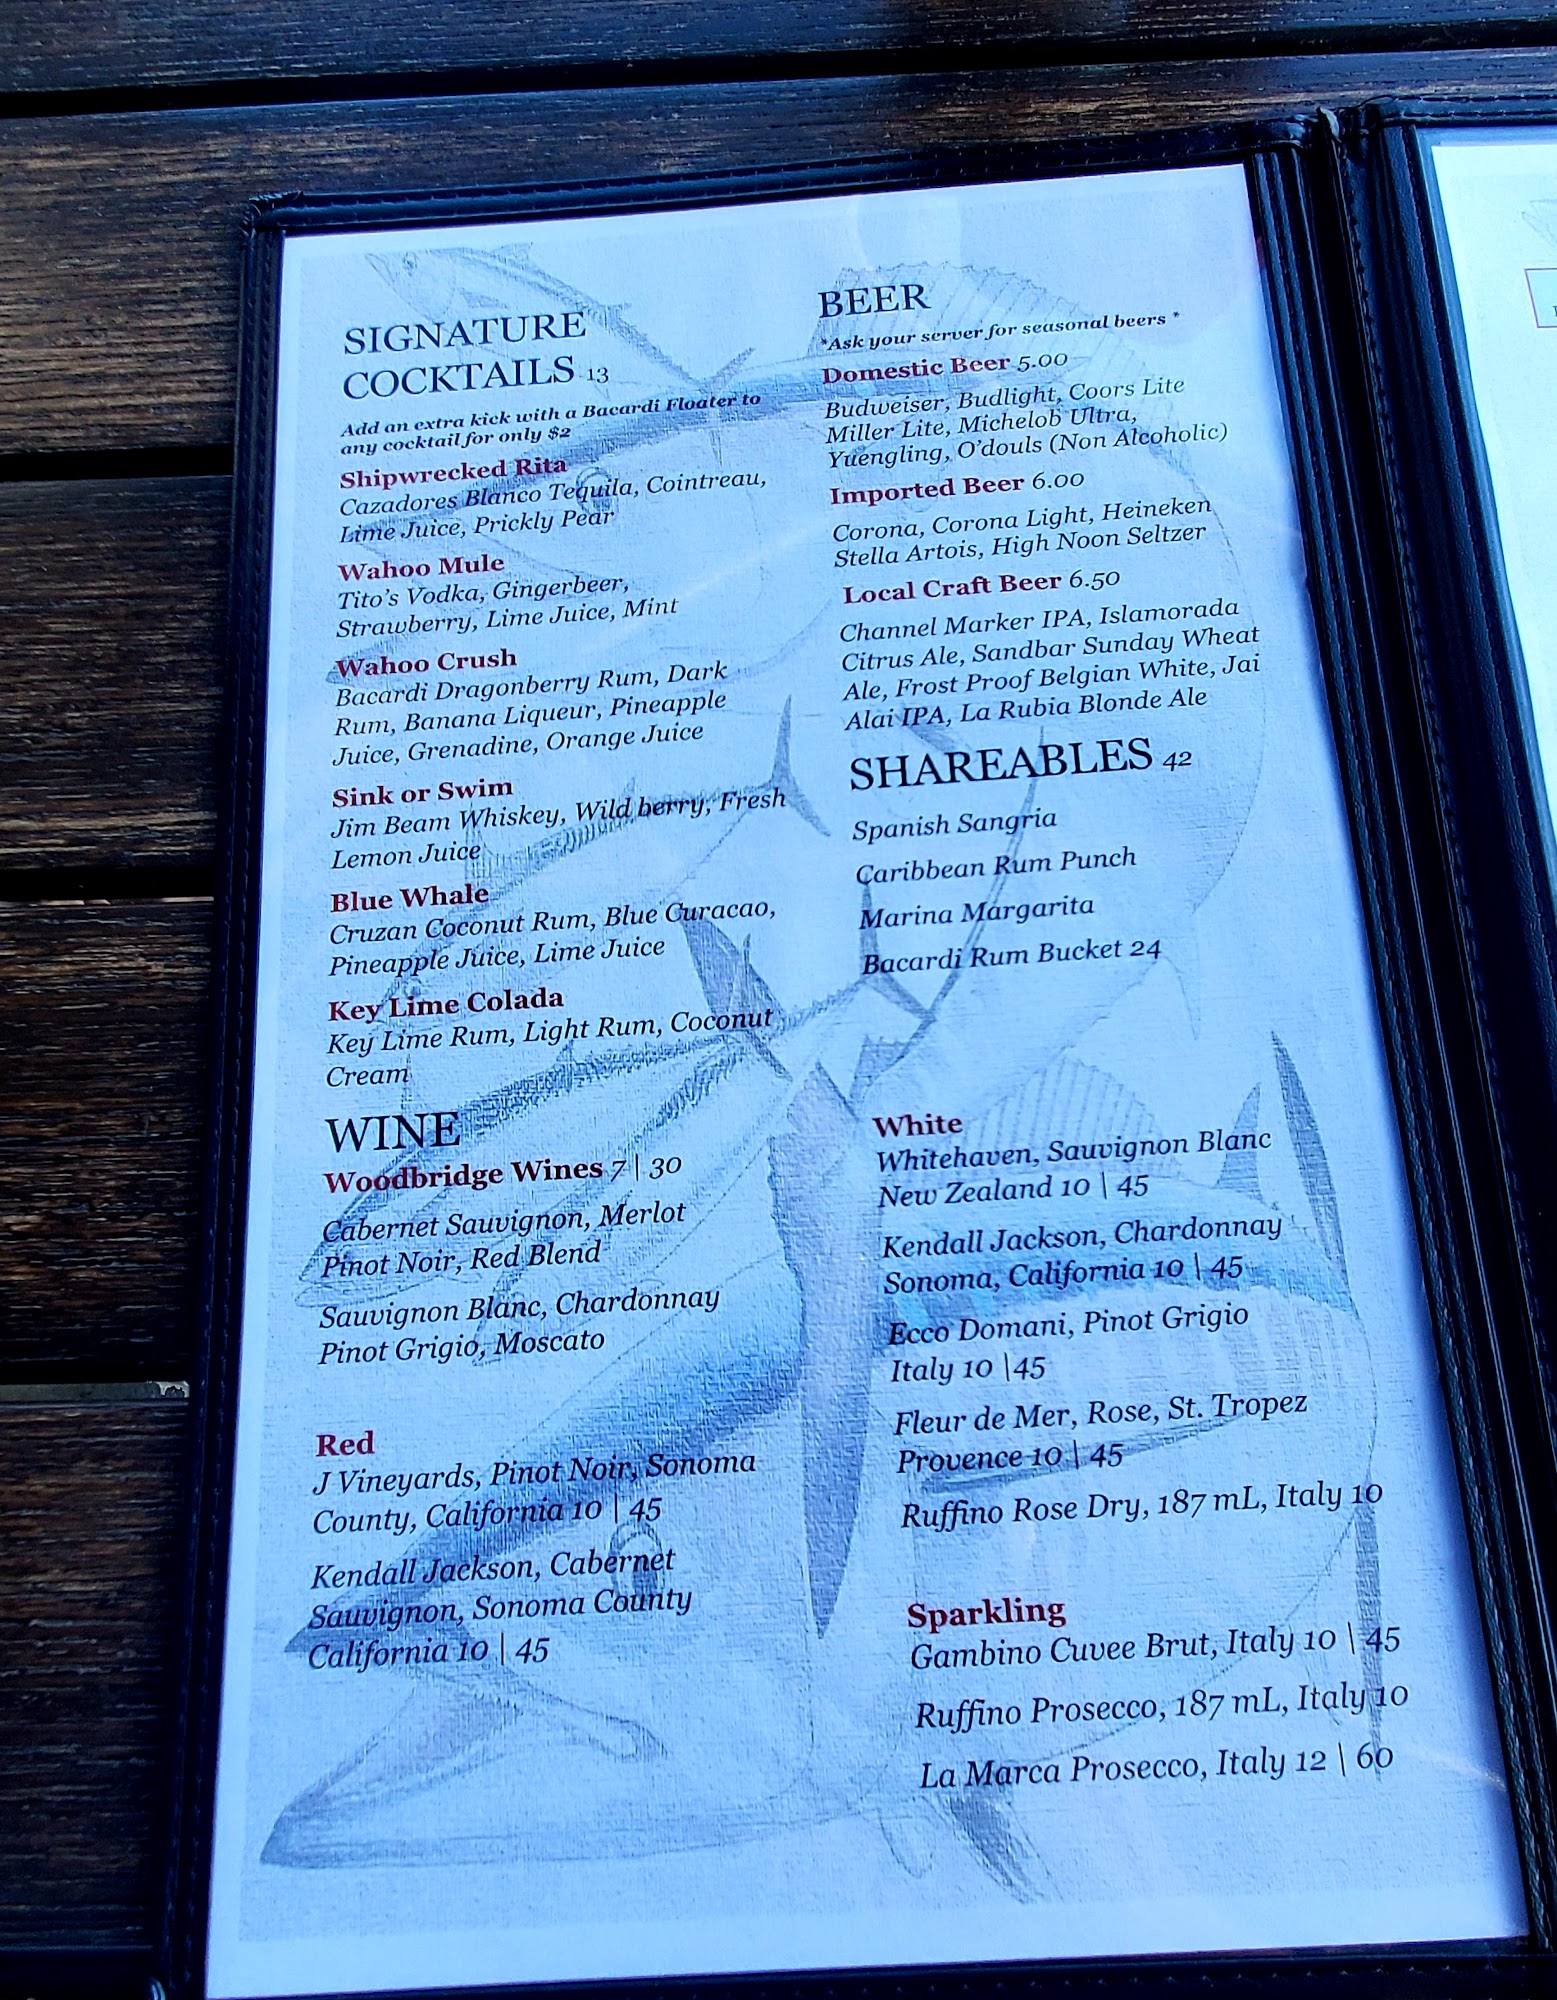 SIGNATURE
COCKTAILS 13
Add an extra kick with a Bacardi Floater to
any cocktail for only $2
Shipwrecked Rita
Cazadores Blanco Tequila, Cointreau,
Lime Juice, Prickly Pear
Wahoo Mule
Tito's Vodka, Gingerbeer,
Strawberry, Lime Juice, Mint
Wahoo Crush
Bacardi Dragonberry Rum, Dark
Rum, Banana Liqueur, Pineapple
Juice, Grenadine, Orange Juice
Sink or Swim
Jim Beam Whiskey, Wild berry, Fresh
Lemon Juice
Blue Whale
Cruzan Coconut Rum, Blue Curacao,
Pineapple Juice, Lime Juice
Key Lime Colada
Key Lime Rum, Light Rum, Coconut
Cream
BEER
*Ask your server for seasonal beers *
Domestic Beer 5.00
Budweiser, Budlight, Coors Lite
Miller Lite, Michelob Ultra,
Yuengling, O'douls (Non Alcoholic)
Imported Beer 6.00
Corona, Corona Light, Heineken
Stella Artois, High Noon Seltzer
Local Craft Beer 6.50
Channel Marker IPA, Islamorada
Citrus Ale, Sandbar Sunday Wheat
Ale, Frost Proof Belgian White, Jai
Alai IPA, La Rubia Blonde Ale
SHAREABLES 42
Spanish Sangria
Caribbean Rum Punch
Marina Margarita
Bacardi Rum Bucket 24
WINE
Woodbridge Wines 7 | 30
Cabernet Sauvignon, Merlot
Pinot Noir, Red Blend
Sauvignon Blanc, Chardonnay
Pinot Grigio, Moscato
Red
J Vineyards, Pinot Noir, Sonoma
County, California 10 | 45
Kendall Jackson, Cabernet
Sauvignon, Sonoma County
California 10 | 45
White
Whitehaven, Sauvignon Blanc
New Zealand 10 | 45
Kendall Jackson, Chardonnay
Sonoma, California 10 | 45
Ecco Domani, Pinot Grigio
Italy 10 |45
Fleur de Mer, Rose, St. Tropez
Provence 10 | 45
Ruffino Rose Dry, 187 mL, Italy 10
Sparkling
Gambino Cuvee Brut, Italy 10 | 45
Ruffino Prosecco, 187 mL, Italy 10
La Marca Prosecco, Italy 12 | 60